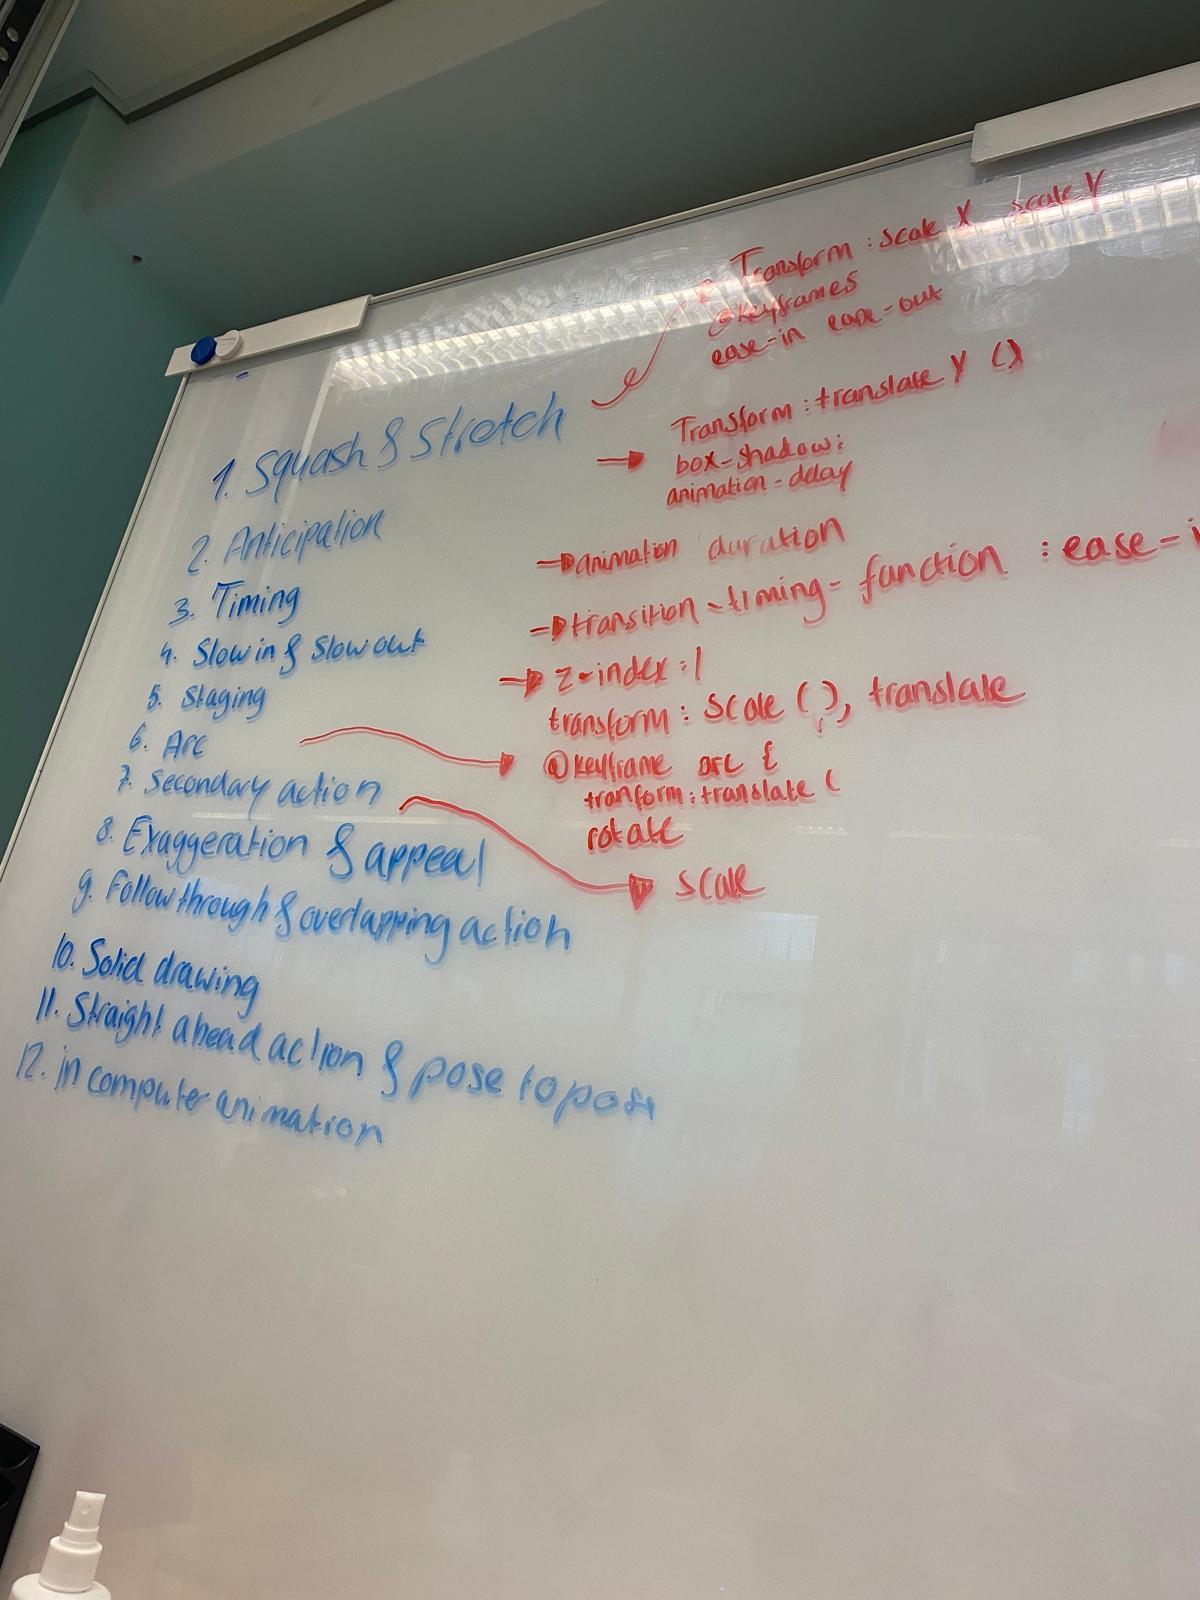 1. Squash & Stretch
2. Anticipation
3. Timing
4. Slow in & Slow out
5. Staging
6. Arc
7. Secondary action
8. Exaggeration & appeal
9. Follow through & overlapping action
10. Solid drawing
11. Straight ahead action & pose to pose
12. in computer animation
Transform : scale X scale Y
@keyframes
ease-in ease-out
Transform : translate Y ()
box-shadow:
animation-delay
animation duration
transition-timing-function : ease-i
z-index : 1
transform : scale ( ), translate
@keyframe arc {
tranform : translate (
rotate
scale